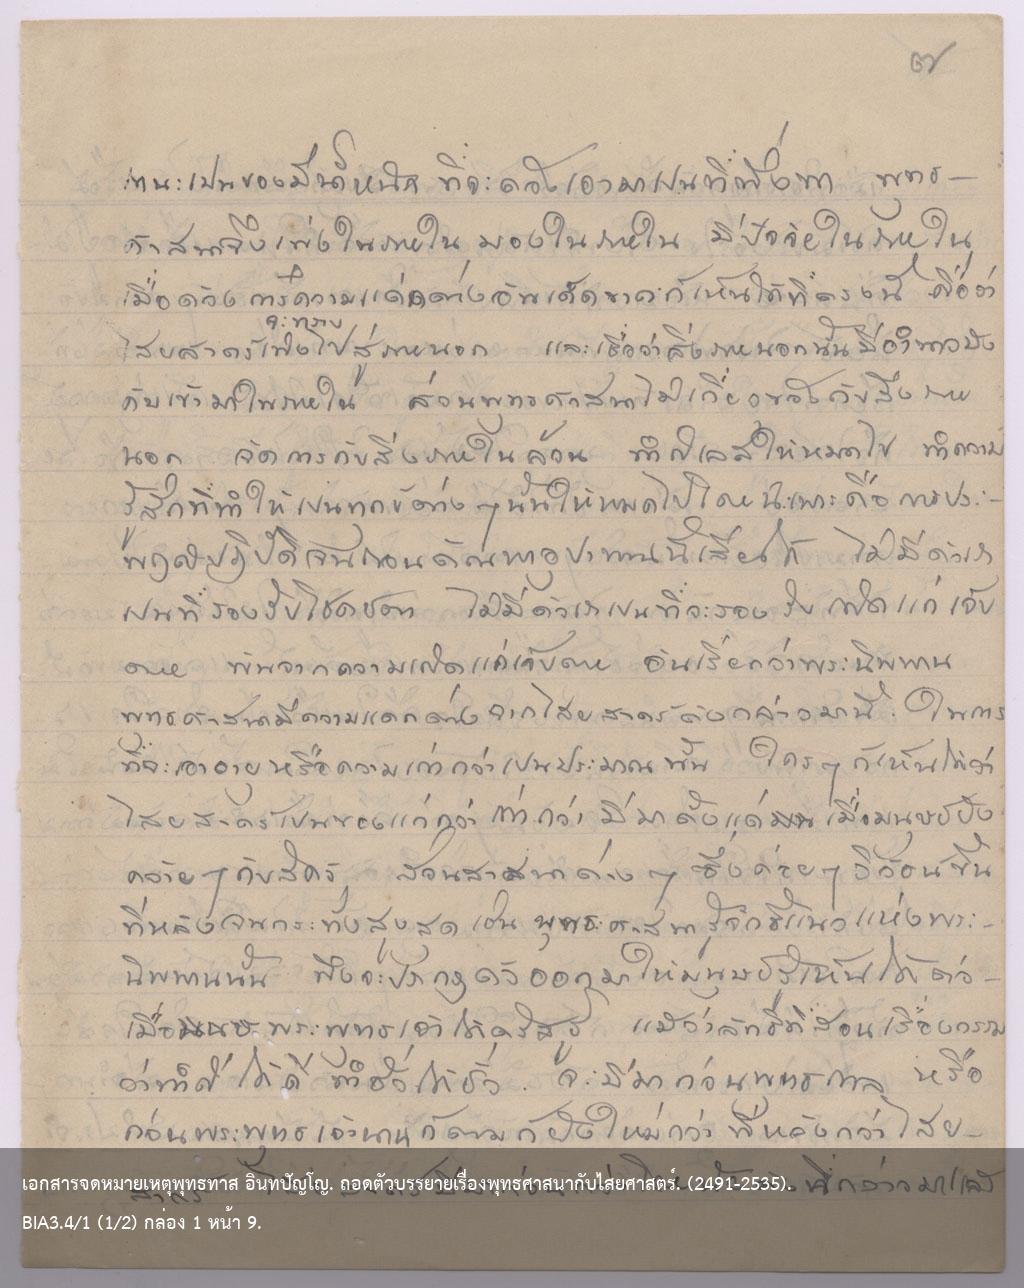 ๗
เป็นของมีน้ำหนัก ที่จะดึงเอามาเปนที่พึ่งพา พุทธ–
ศาสนาจึงเพ่งในภายใน มองในภายใน มีปัจจัยในภายใน
เมื่อดังการความแตกต่างอันเด็ดขาดก็เห็นได้ที่ตรงนี้ คือว่า
จะทราบ
ไสยสาตร์เพ่งไปสู่ภายนอก และเชื่อว่าสิ่งภายนอกนั้นมีอำนาจบัง
คับเข้ามาในภายใน ส่วนพุทธศาสนาไม่เกี่ยวข้องกับสิ่งภาย
นอก จัดการกับสิ่งภายในล้วน ทำกิเลสให้หมดไป ทำความ
รู้สึกที่ทำให้เปนทุกข์ต่าง ๆ นั้นให้หมดไปโดยฉะเพาะคือการประ–
พฤติปฏิบัติจนถอนตัณหาอุปาทานนี้เสียได้ ไม่มีตัวเรา
เปนที่รองรับโชคชะตา ไม่มีตัวเราเปนที่จะรองรับ เกิดแก่เจ็บ
ตาย พ้นจากความเกิดแก่เจ็บตาย อันเรียกว่าพระนิพพาน
พุทธศาสนามีความแตกต่างจากไสยสาตร์ดังกล่าวมานี้. ในการ
ที่จะเอาอายุหรือความเก่ากว่าเปนประมาณนั้น ใคร ๆ ก็เห็นได้ว่า
ไสยสาตร์เปนของแก่กว่า เก่ากว่า มีมาตั้งแต่ เมื่อมนุษย์ยัง
คล้าย ๆ กับสัตว์, ส่วนสาสนาต่าง ๆ ซึ่งค่อย ๆ วิวัฒน์ขึ้น
ทีหลังจนกระทั่งสูงสุด เช่น พุทธศาสนารู้จักชี้แนวแห่งพระ–
นิพพานนั้น พึ่งจะปรากฏตัวออกมาให้มนุษย์รู้เห็นได้ต่อ–
เมื่อ พระพุทธเจ้าได้ตรัสรู้ แม้ว่าลัทธิที่สอนเรื่องกรรม
ว่าทำดีได้ดี ทำชั่วได้ชั่ว. จะมีมาก่อนพุทธกาล หรือ
ก่อนพระพุทธเจ้านานก็ตาม ก็ยังใหม่กว่า ทีหลังกว่าไสย–
สาตร์ ที่กล่าวมาแล้ว
เอกสารจดหมายเหตุพุทธทาส อินทปัญโญ. ถอดตัวบรรยายเรื่องพุทธศาสนากับไสยศาสตร์. (2491-2535).
BIA3.4/1 (1/2) กล่อง 1 หน้า 9.